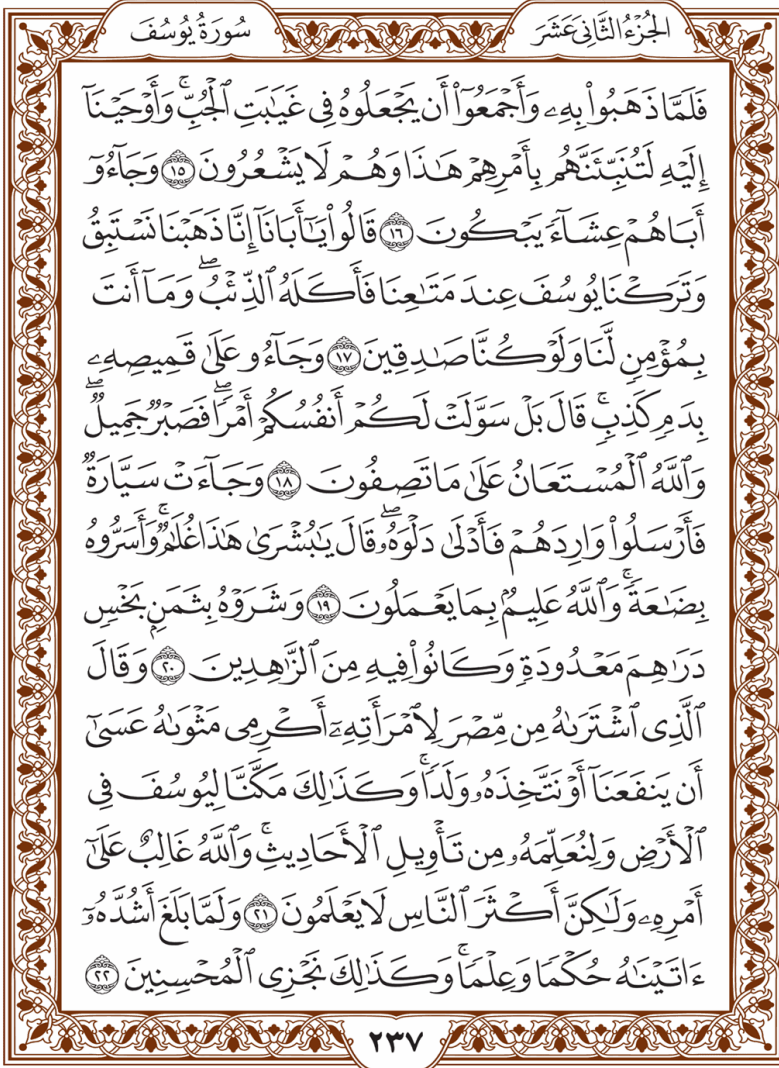 سُورَةُ يُوسُفَ
الجُزْءُ الثَّانِي عَشَرَ
فَلَمَّا ذَهَبُوا۟ بِهِۦ وَأَجْمَعُوٓا۟ أَن يَجْعَلُوهُ فِى غَيَٰبَتِ ٱلْجُبِّ ۚ وَأَوْحَيْنَآ
إِلَيْهِ لَتُنَبِّئَنَّهُم بِأَمْرِهِمْ هَٰذَا وَهُمْ لَا يَشْعُرُونَ ١٥ وَجَآءُوٓ
أَبَاهُمْ عِشَآءً يَبْكُونَ ١٦ قَالُوا۟ يَٰٓأَبَانَآ إِنَّا ذَهَبْنَا نَسْتَبِقُ
وَتَرَكْنَا يُوسُفَ عِندَ مَتَٰعِنَا فَأَكَلَهُ ٱلذِّئْبُ ۖ وَمَآ أَنتَ
بِمُؤْمِنٍ لَّنَا وَلَوْ كُنَّا صَٰدِقِينَ ١٧ وَجَآءُو عَلَىٰ قَمِيصِهِۦ
بِدَمٍ كَذِبٍ ۚ قَالَ بَلْ سَوَّلَتْ لَكُمْ أَنفُسُكُمْ أَمْرًا ۖ فَصَبْرٌ جَمِيلٌ ۖ
وَٱللَّهُ ٱلْمُسْتَعَانُ عَلَىٰ مَا تَصِفُونَ ١٨ وَجَآءَتْ سَيَّارَةٌ
فَأَرْسَلُوا۟ وَارِدَهُمْ فَأَدْلَىٰ دَلْوَهُۥ ۖ قَالَ يَٰبُشْرَىٰ هَٰذَا غُلَٰمٌ ۚ وَأَسَرُّوهُ
بِضَٰعَةً ۚ وَٱللَّهُ عَلِيمٌۢ بِمَا يَعْمَلُونَ ١٩ وَشَرَوْهُ بِثَمَنٍۭ بَخْسٍ
دَرَٰهِمَ مَعْدُودَةٍ وَكَانُوا۟ فِيهِ مِنَ ٱلزَّٰهِدِينَ ٢٠ وَقَالَ
ٱلَّذِى ٱشْتَرَىٰهُ مِن مِّصْرَ لِٱمْرَأَتِهِۦٓ أَكْرِمِى مَثْوَىٰهُ عَسَىٰٓ
أَن يَنفَعَنَآ أَوْ نَتَّخِذَهُۥ وَلَدًا ۚ وَكَذَٰلِكَ مَكَّنَّا لِيُوسُفَ فِى
ٱلْأَرْضِ وَلِنُعَلِّمَهُۥ مِن تَأْوِيلِ ٱلْأَحَادِيثِ ۚ وَٱللَّهُ غَالِبٌ عَلَىٰٓ
أَمْرِهِۦ وَلَٰكِنَّ أَكْثَرَ ٱلنَّاسِ لَا يَعْلَمُونَ ٢١ وَلَمَّا بَلَغَ أَشُدَّهُۥٓ
ءَاتَيْنَٰهُ حُكْمًا وَعِلْمًا ۚ وَكَذَٰلِكَ نَجْزِى ٱلْمُحْسِنِينَ ٢٢
٢٣٧